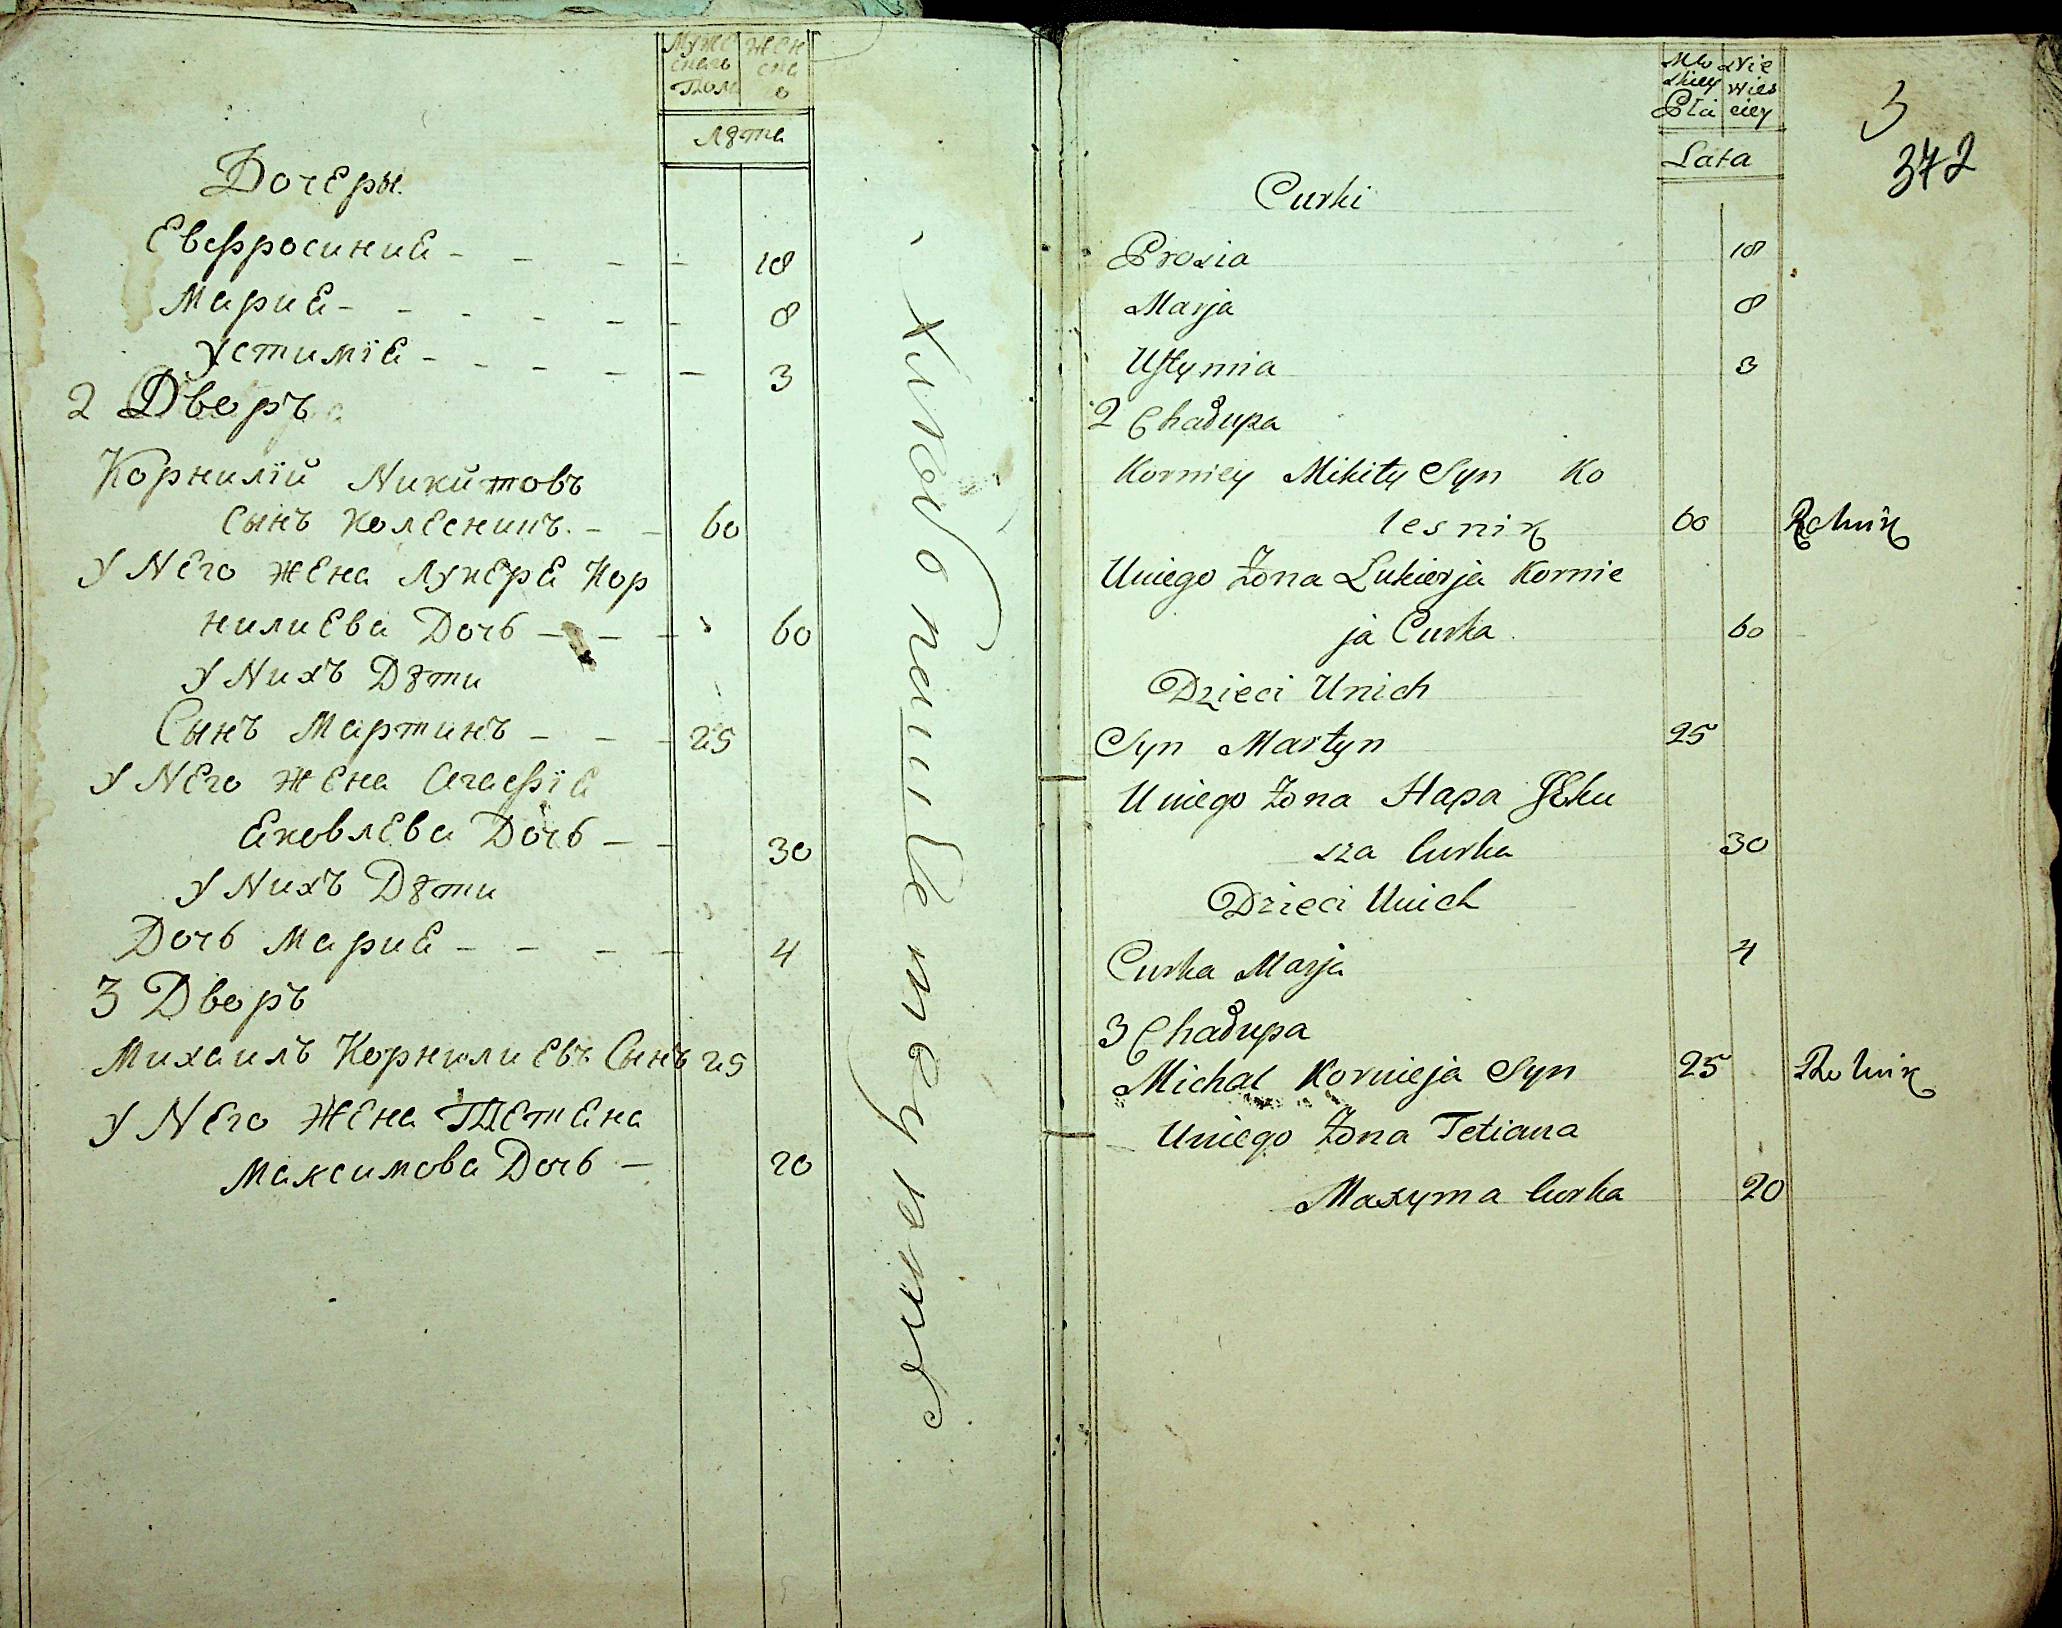 Мужескаго Полу
Женска
Лѣта
Дочеры
Евфросиниѣ - - - - 18
Мариѣ - - - - - - 8
Устиміѣ - - - - - 3
2 Дворъ
Корнилій Никитовъ
Сынъ Колесникъ. - - 60
У Него жена Лукерѣ Кор
нилиева Дочь - - - 60
У Нихъ Дѣти
Сынъ Мартинъ - - - 25
У Него жена Агафіѣ
Ековлева Дочь - - 30
У Нихъ Дѣти
Дочь Мариѣ - - - - 4
3 Дворъ
Михаилъ Корнилиевъ Сынъ 25
У Него Жена Тетѣна
Максимова Дочь - 20
Męskiey Płci
Niewiesciey
Lata
3
372
Curki
Prosia 18
Marja 8
Ustymia 3
2 Chałupa
Korniey Mikity Syn Ko
lesnik 60 Rolnik
Uniego Żona Lukierja Kornie
ja Curka 60
Dzieci Unich
Syn Martyn 25
Uniego Żona Hapa
sza Curka 30
Dzieci Unich
Curka Marja 4
3 Chałupa
Michał Kornieja Syn 25 Rolnik
Uniego Żona Tetiana
Maxyma Curka 20